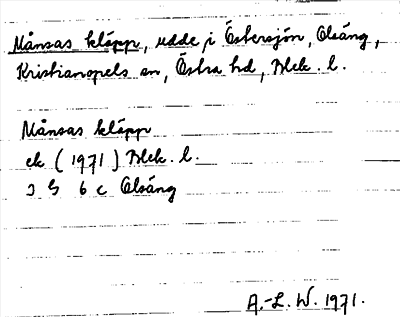 Månsas kläpp, udde i Östersjön, Olsäng,
Kristianopels sn, Östra hd, Blek. l.
Månsas kläpp
ek (1971) Blek. l.
3 G 6 c Olsäng
A.-L. W. 1971.